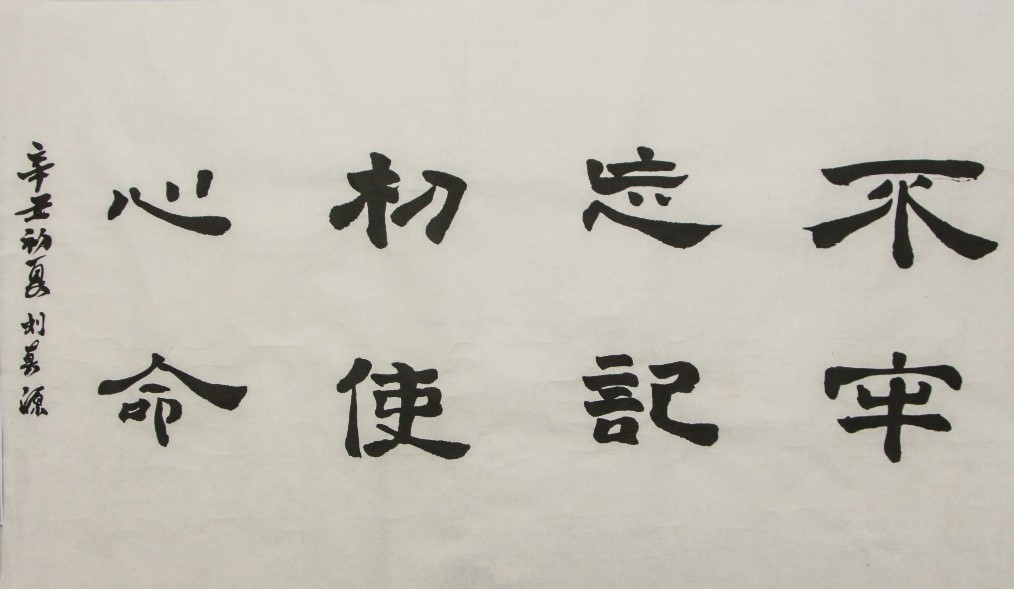 不忘初心
牢記使命
辛丑初夏 刘 源